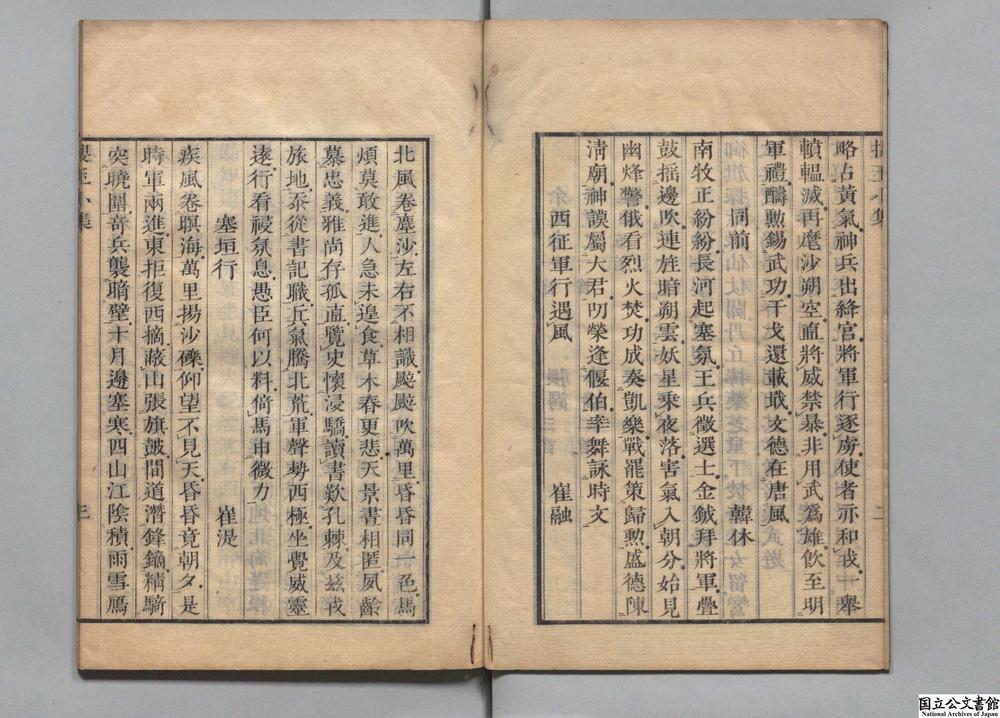 略占黃氣神兵出絳宮將軍行逐虜使者亦和戎一舉
轒轀滅再麾沙朔空直將威禁暴非用武爲雄飲至明
軍禮酬勲錫武功干戈還載戢文德在唐風
同前 韓休
南牧正紛紛長河起塞氛王兵徵選士金鉞拜將軍疊
鼓搖邊吹連旌暗朔雲妖星乗夜落害氣入朝分始見
幽烽警俄看烈火焚功成奏凱樂戰罷策歸勲盛德陳
淸廟神謨屬大君叨榮逢偃伯幸舞詠時文
西征軍行遇風 崔融
北風卷塵沙左右不相識颼颼吹萬里昏昏同一色馬
煩莫敢進人急未遑食草木春更悲天景晝相匿夙齡
慕忠義雅尚存孤直覽史懷浸驕讀書歎孔棘及茲戎
旅地忝從書記職兵氣騰北荒軍聲勢西極坐覺威靈
遠行看祲氛息愚臣何以料倚馬申微力
塞垣行 崔湜
疾風卷暝海萬里揚沙礫仰望不見天昏昏竟朝夕是
時軍兩進東拒復西摘蔽山張旗鼓間道潛鋒鏑精騎
突曉圍奇兵襲暗壁十月邊塞寒四山江陰積雨雪鴈
三
国立公文書館
National Archives of Japan